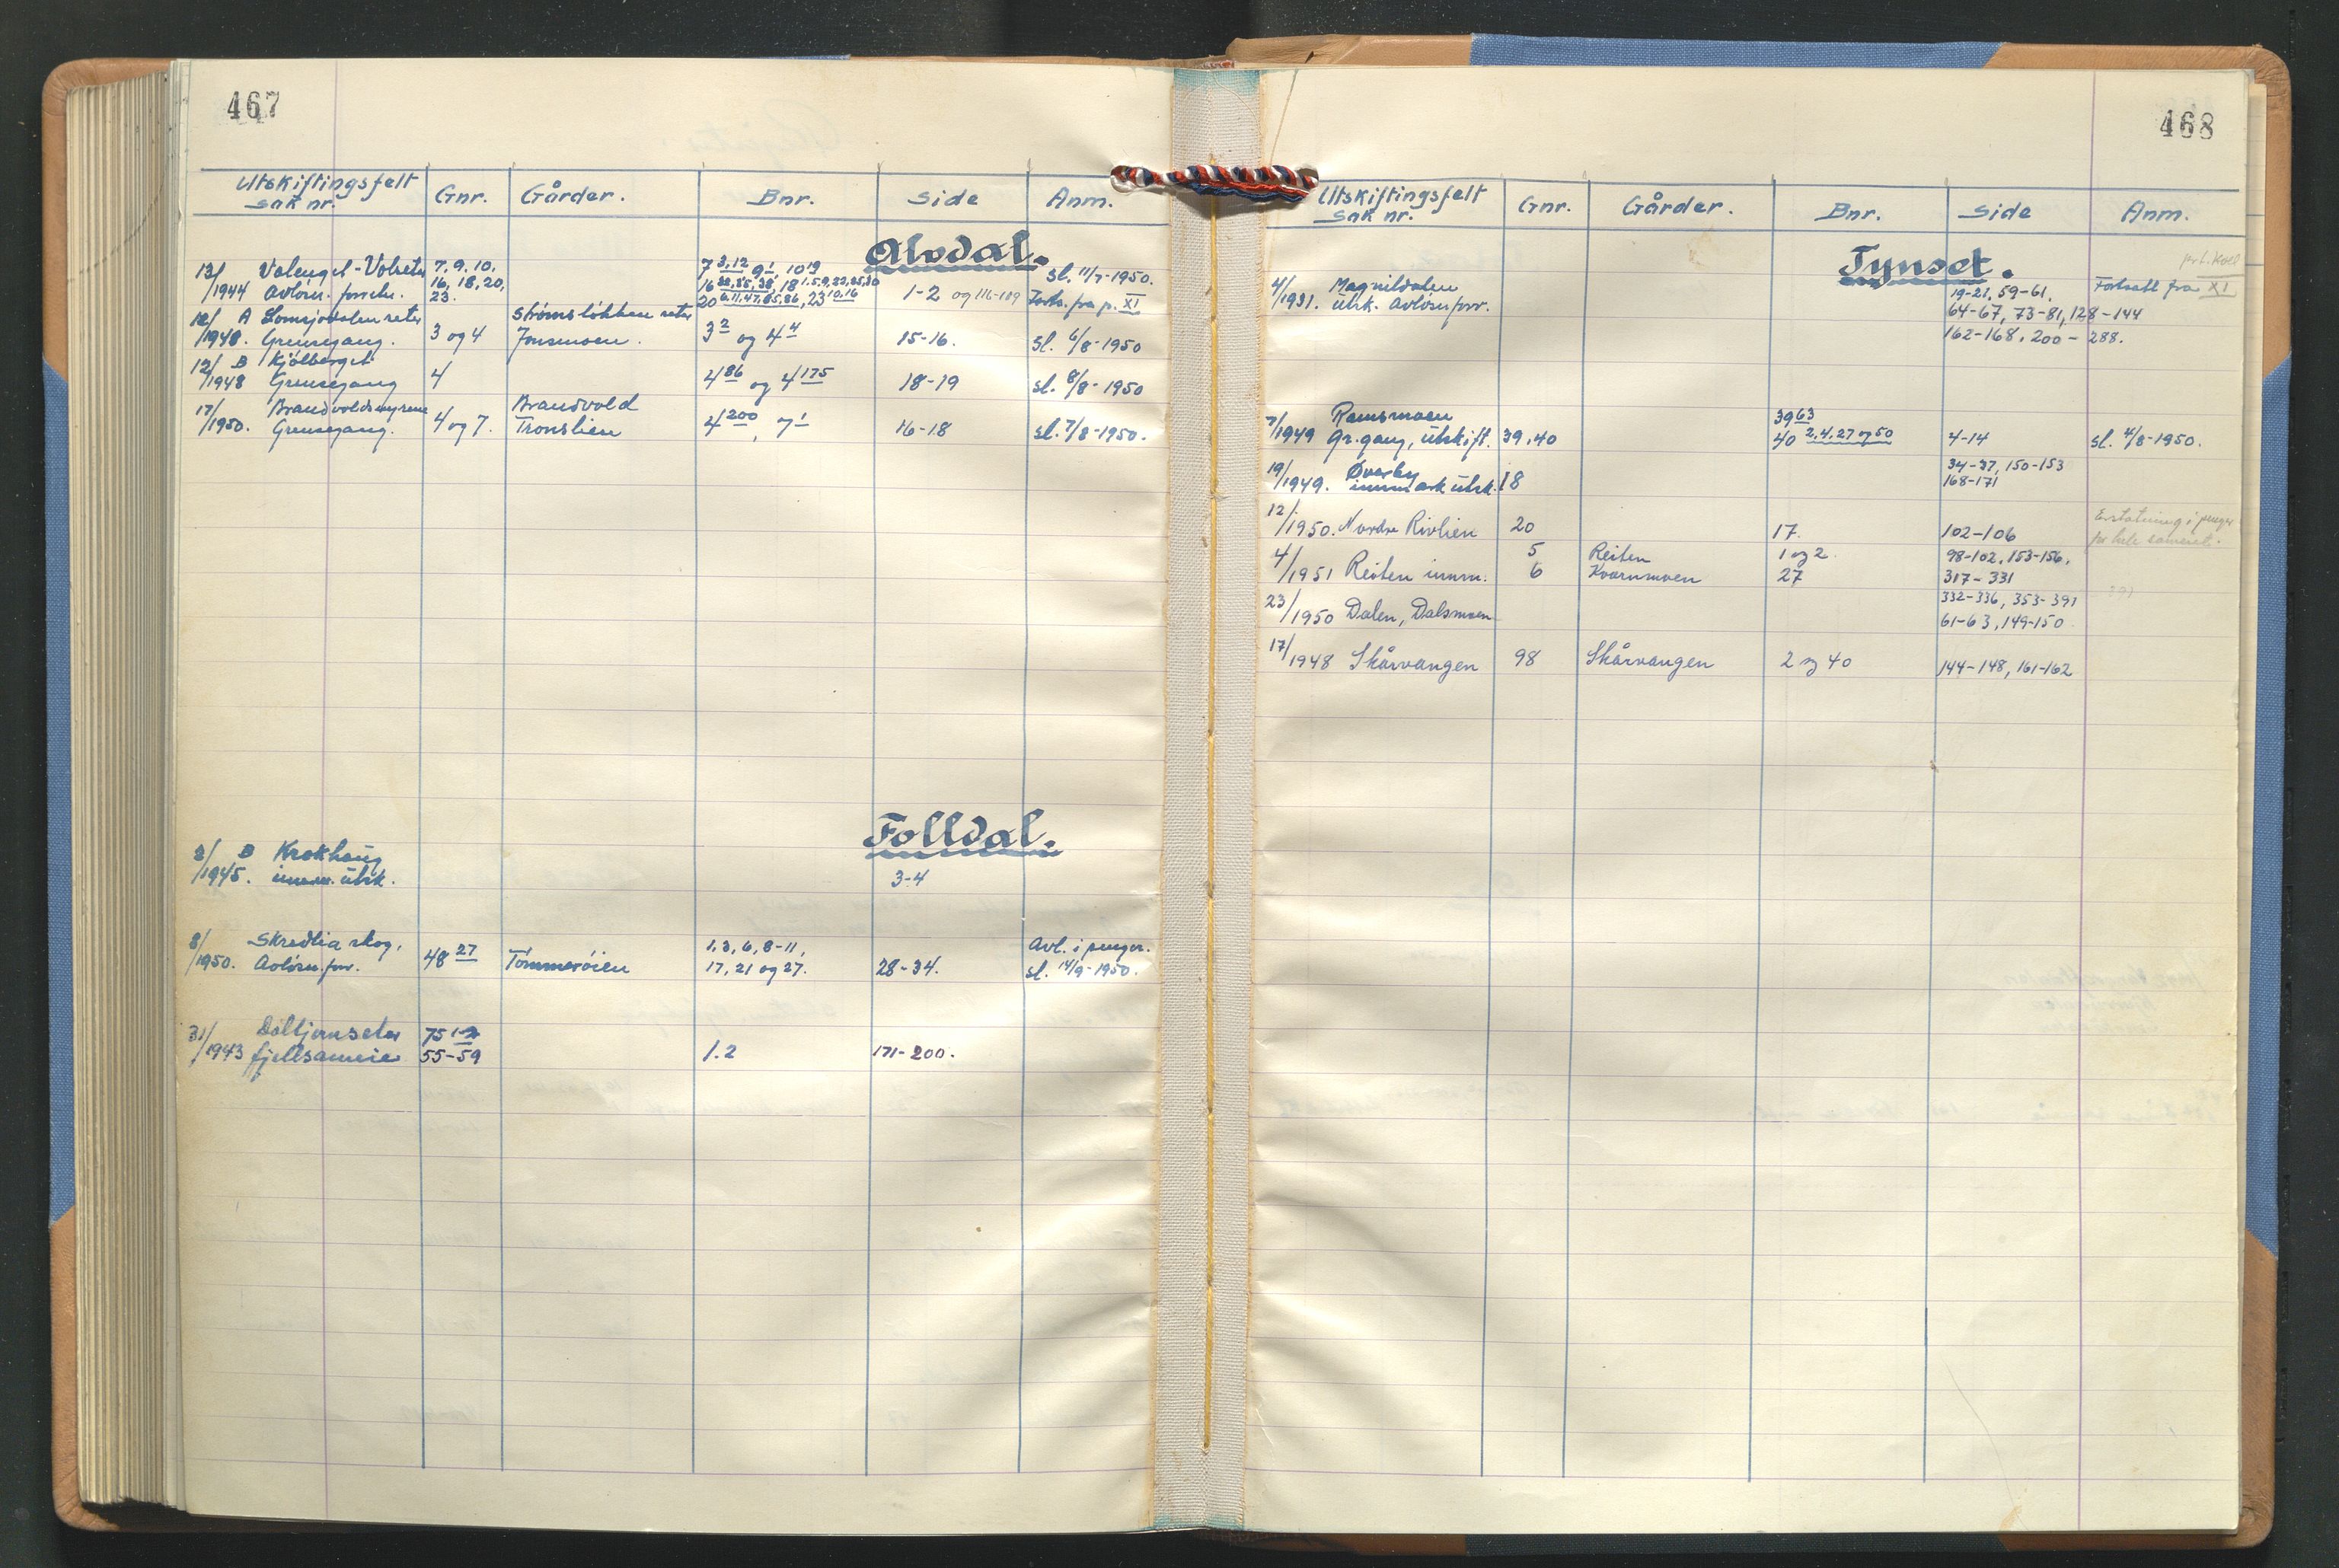 467
Utskiftingsfelt sak nr. Gnr. Gårder. Bnr. Side Anm.
Alvdal.
13/1944 Valengel-Volseter 7. 9. 10. 7 3,12 9 1, 10 19 sl. 11/7-1950.
Avløsn. 16, 18, 20, 23. 16 18 20 6,11,47,85,86, 23 10,16 1-2 og 116-189 Forts. fra p. XI
12/1948 A Lomsjødalen seter Strømsløkken seter
Grensegang. 3 og 4 Jonsmoen. 3 2 og 4 4 15-16. sl. 6/8-1950
12/1948 B Kjølberget
Grensegang 4 4 86 og 4 175 18-19 sl. 8/8-1950
17/1950. Brandvoldsmyrene Brandvold
Grensegang. 4 og 7. Tronslien 4 200, 7 1 16-18 sl. 7/8-1950.
Folldal.
2/1945. B Krokhaug
innm. utsk. 3-4
8/1950. Skredlia skog, 1, 3, 6, 8-11, Avl. i penger.
Avløsn. 48 27 Tømmerøien 17, 21 og 27. 28-34. sl. 14/9-1950.
31/1943 Døltjernseter 75
fjellsameie 55-59 1.2 171-200.
468
Utskiftingsfelt sak nr. Gnr. Gårder. Bnr. Side Anm.
Tynset.
4/1931. Magnildalen 19-21, 59-61. Fortsatt fra XI
utsk. 64-67, 73-81, 128-144
162-168, 200-288.
7/1949 Ramsmoen 39 63
Gr.gang, utskift. 39, 40 40 2, 4, 27 og 50 4-14 sl. 4/8-1950.
19/1949. Øverby 34-37, 150-153
innmark utsk. 18 168-171
12/1950. Nordre Rivlien 20 17. 102-106 Erstatning i penger for hele sameiet.
4/1951 Reiten innm. 5 Reiten 1 og 2. 98-102, 153-156,
6 Kvernmoen 27 317-331
23/1950 Dalen, Dalsmoen 332-336, 353-391
61-63, 149-150
17/1948 Skårvangen 98 Skårvangen 2 og 40 144-148, 161-162